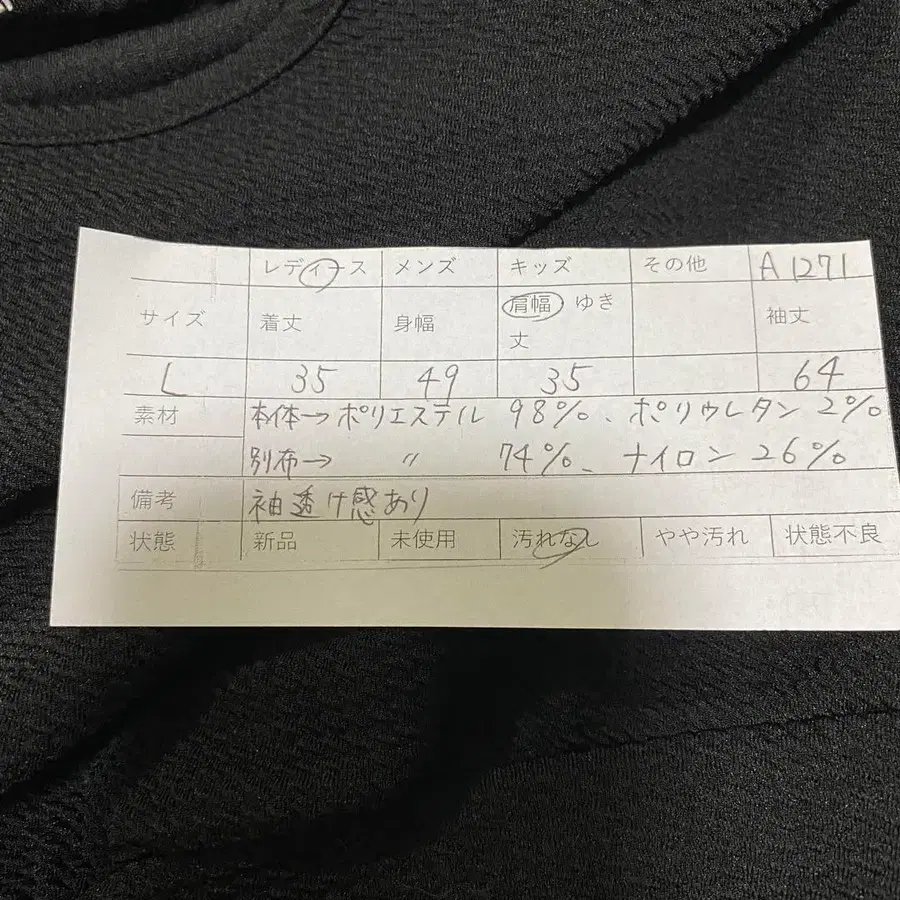 レディース メンズ キッズ その他 A1271
サイズ 着丈 身幅 肩幅 ゆき丈 袖丈
L 35 49 35 64
素材 本体→ポリエステル 98%、ポリウレタン 2%
別布→ 〃 74%、ナイロン 26%
備考 袖透け感あり
状態 新品 未使用 汚れなし やや汚れ 状態不良